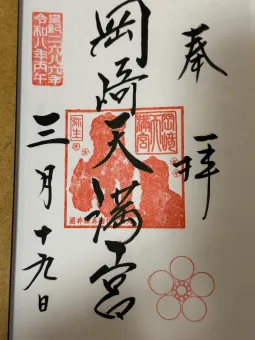 奉拝
岡崎天満宮
岡崎
天満宮
弥生
皇紀二六八六年
令和八年丙午
三月十九日